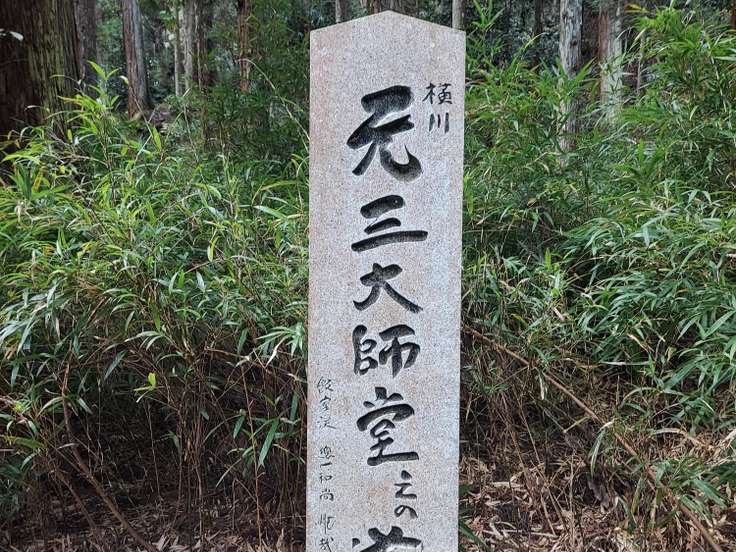 横川
元三大師堂之の
惣一和尚